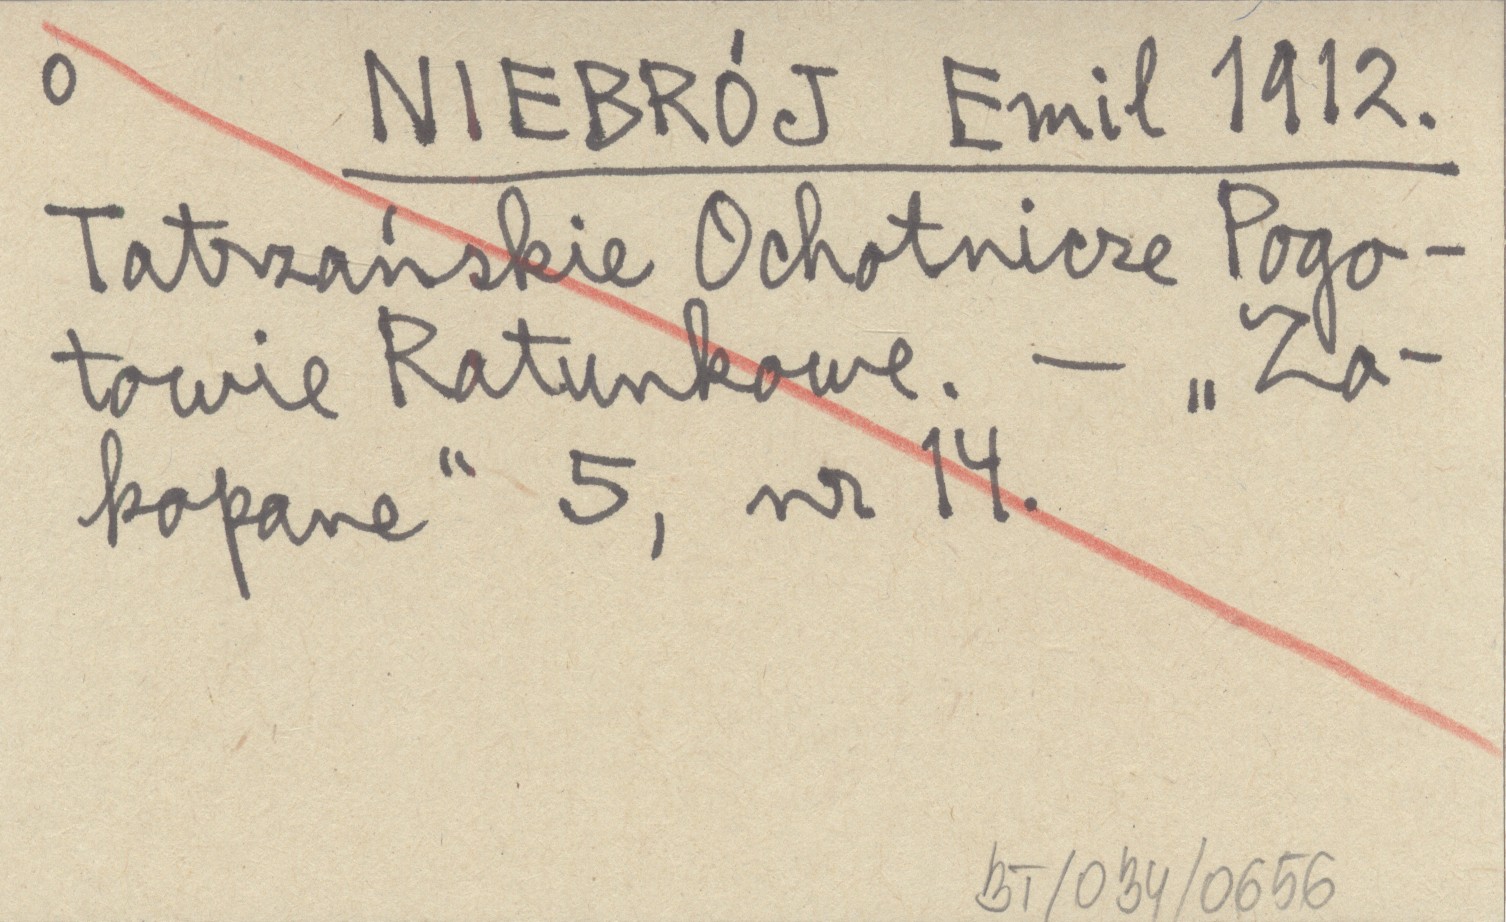 o NIEBRÓJ Emil 1912.
Tatrzańskie Ochotnicze Pogo-
towie Ratunkowe. — „Za-
kopane“ 5, nr 14.
BT/034/0656